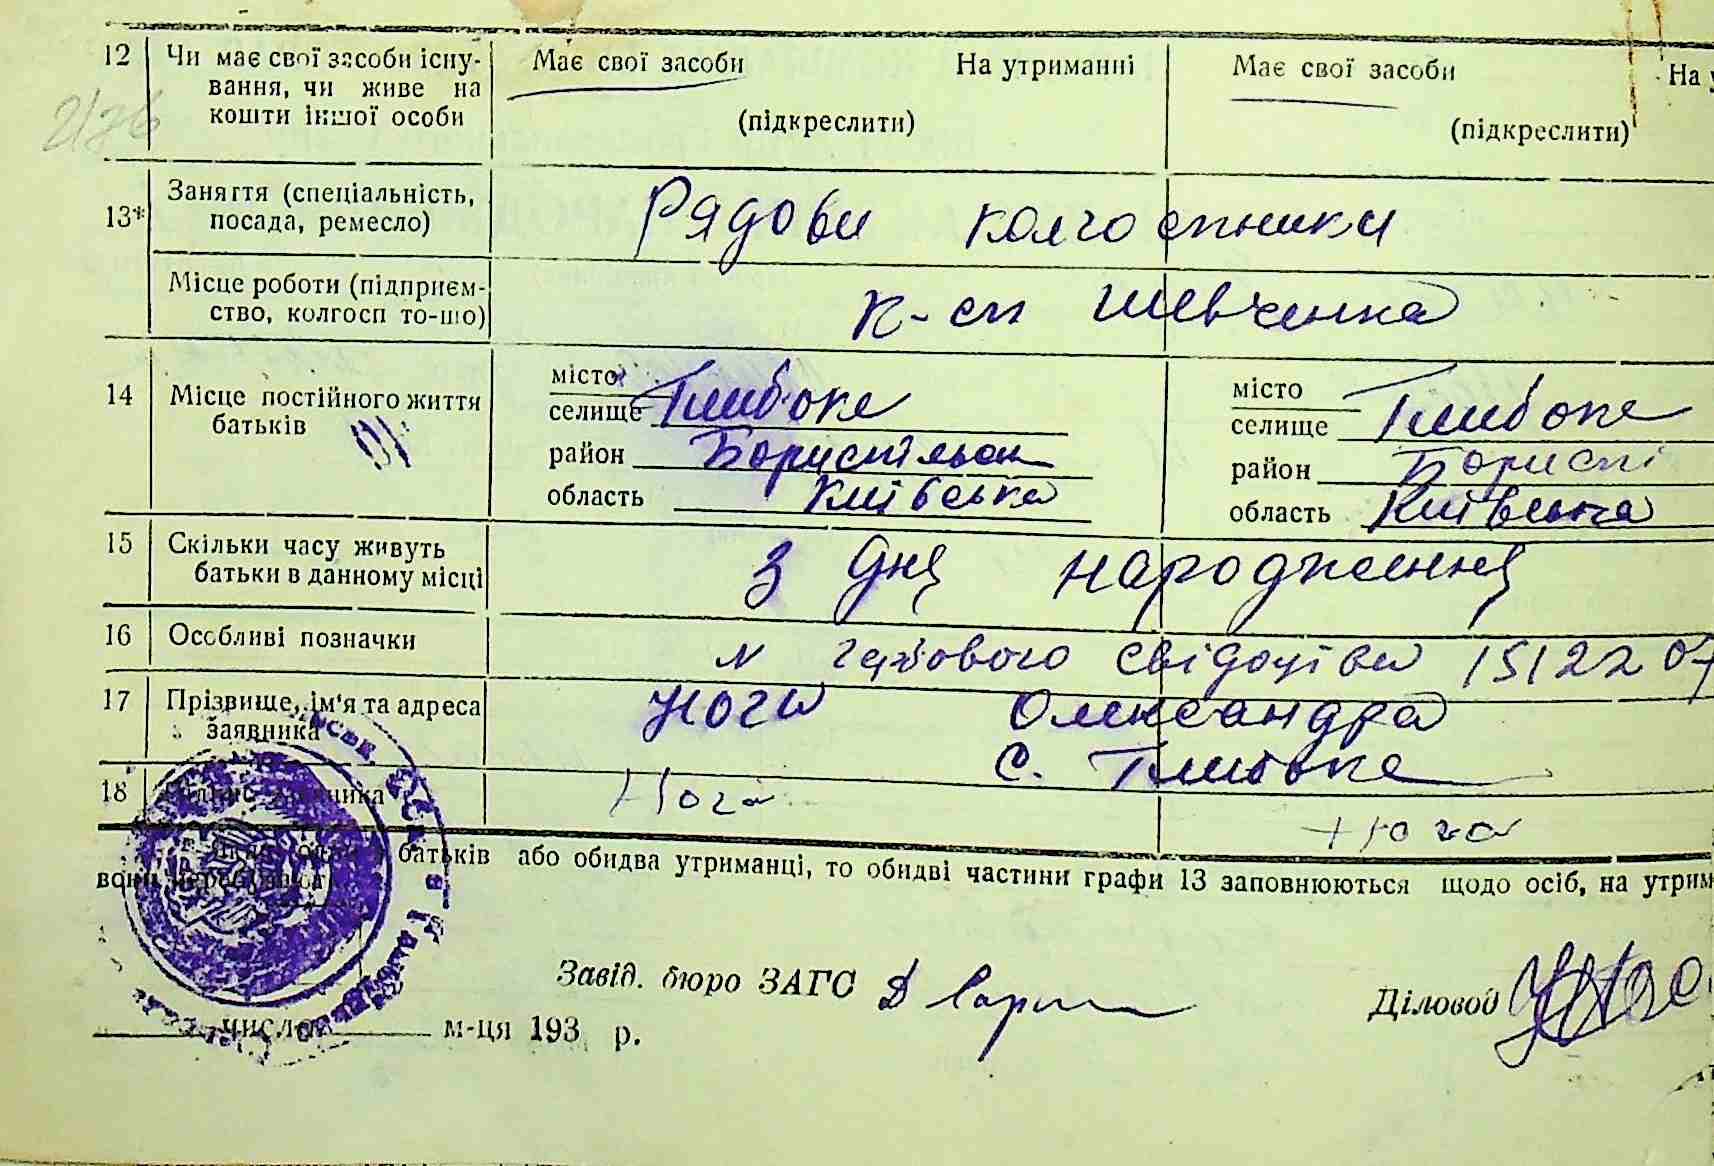 12 Чи має свої засоби існу- Має свої засоби На утриманні Має свої засоби На у
вання, чи живе на
кошти іншої особи (підкреслити) (підкреслити)
13* Заняття (спеціальність,
посада, ремесло) Рядови колгоспники
Місце роботи (підприєм-
ство, колгосп то-що) К-сп Шевченка
14 Місце постійного життя
батьків
місто
селище Глибоке
район Бориспільськ
область Київська
місто
селище Глибоке
район Бориспі
область Київська
15 Скільки часу живуть
батьки в данному місці З дня народження
16 Особливі позначки N гербового свідоцтва 1512207
17 Прізвище, ім'я та адреса
заявника Нога Олександра
с. Глибоке
18 Нога Нога
батьків або обидва утриманці, то обидві частини графи 13 заповнюються щодо осіб, на утрим
вони перебува
Завід. бюро ЗАГС
Діловод
числа м-ця 193 р.